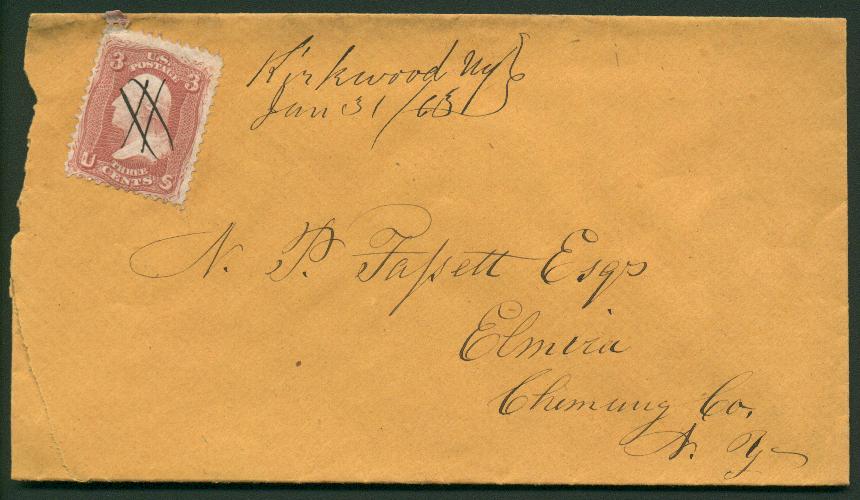 3 U.S. 3
POSTAGE
U THREE S
CENTS
Kirkwood Ny
Jan 31/63
N. P. Fassett Esqr
Elmira
Chemung Co.
N. Y